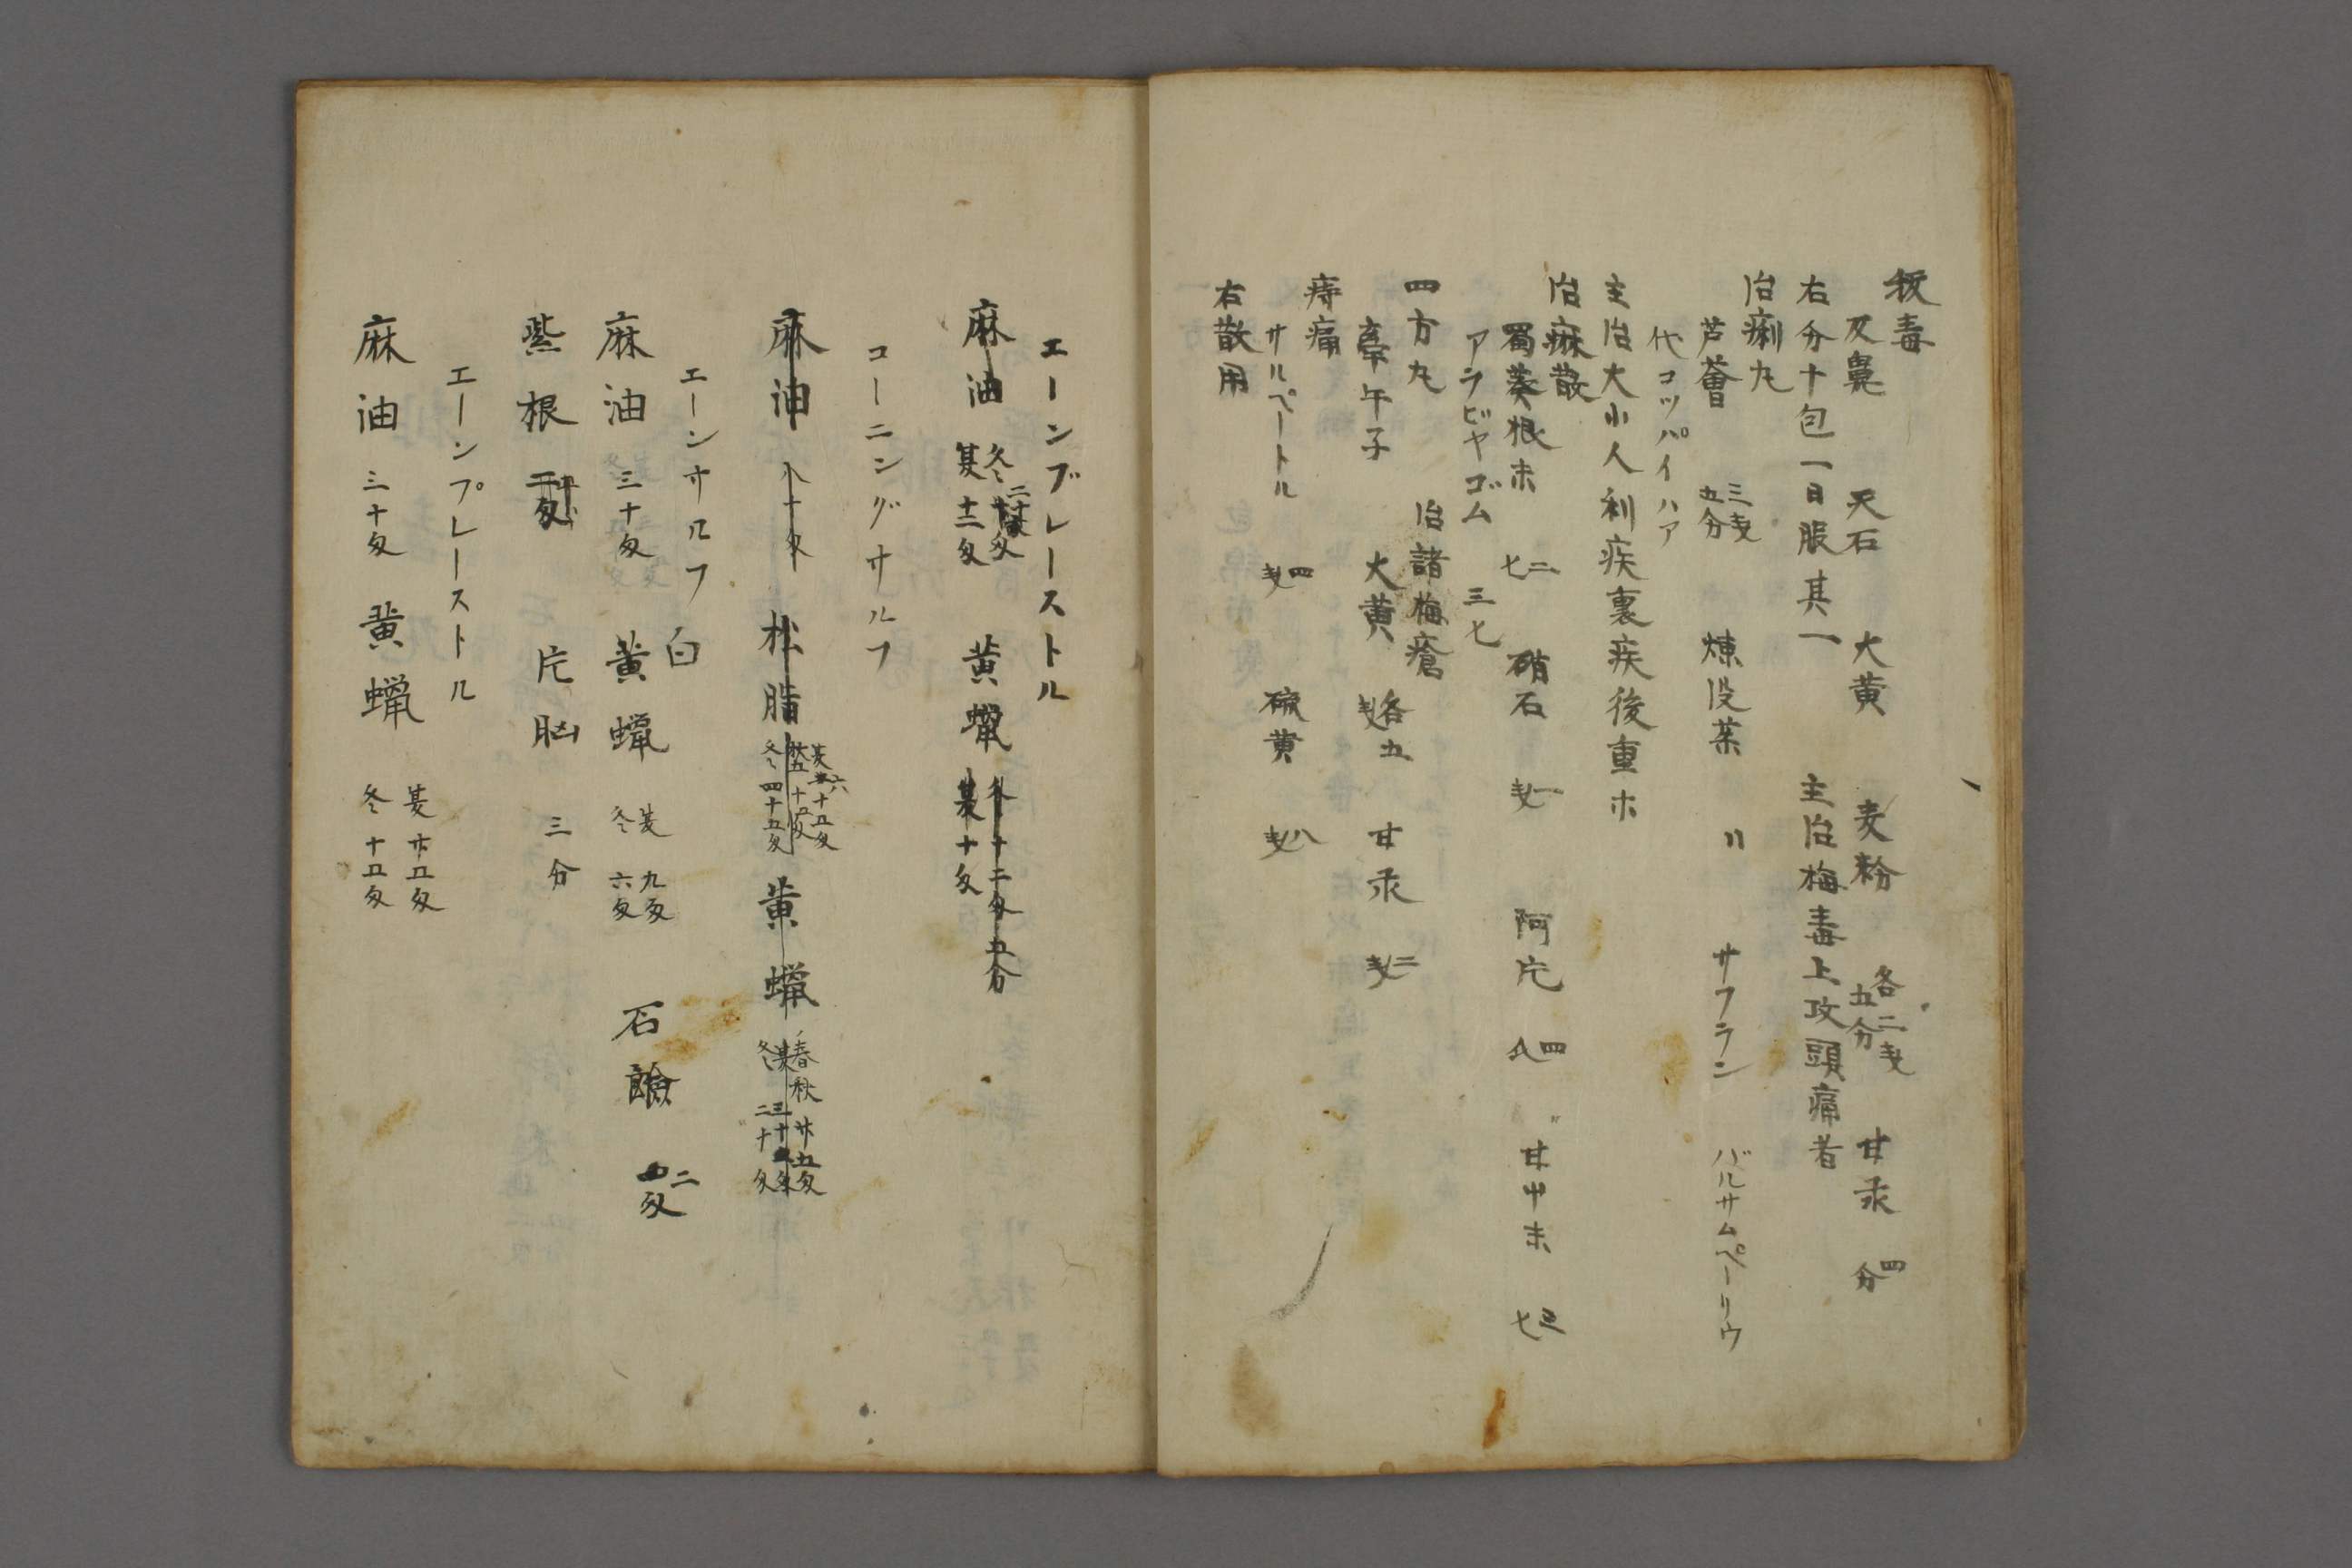 抜毒
反鼻 天石 大黄 麦粉 各二戔五分 甘汞 四分
右分十包一日服其一 主治梅毒上攻頭痛者
治痢丸
芦薈 三戔五分 煉没薬 〃 サフラン バルサムペーリウ
代コッパイハア
主治大小人利疾裏疾後重ホ
治痳散
蜀葵根末 二七 硝石 一戔 阿片 四八 甘中末 三七
アラビヤゴム 三七
四方丸 治諸梅瘡
牽午子 大黄 各五戔 甘汞 二戔
痔痛
サルペートル 四戔 硫黄 八戔
右散用
エーンブレーストル
麻油 冬 夏十二匁 黄蝋 冬十二匁五分 夏十匁
コーニングサルフ
麻油 八十匁 松脂 夏六十五匁 秋五十五匁 冬四十五匁 黄蝋 春秋廿五匁 夏三十匁 冬二十匁
エーンサルフ 白
麻油 三十匁 黄蝋 夏九匁 冬六匁 石鹸 二匁
紫根 匁 片脳 三分
エーンプレーストル
麻油 三十匁 黄蝋 夏廿五匁 冬十五匁